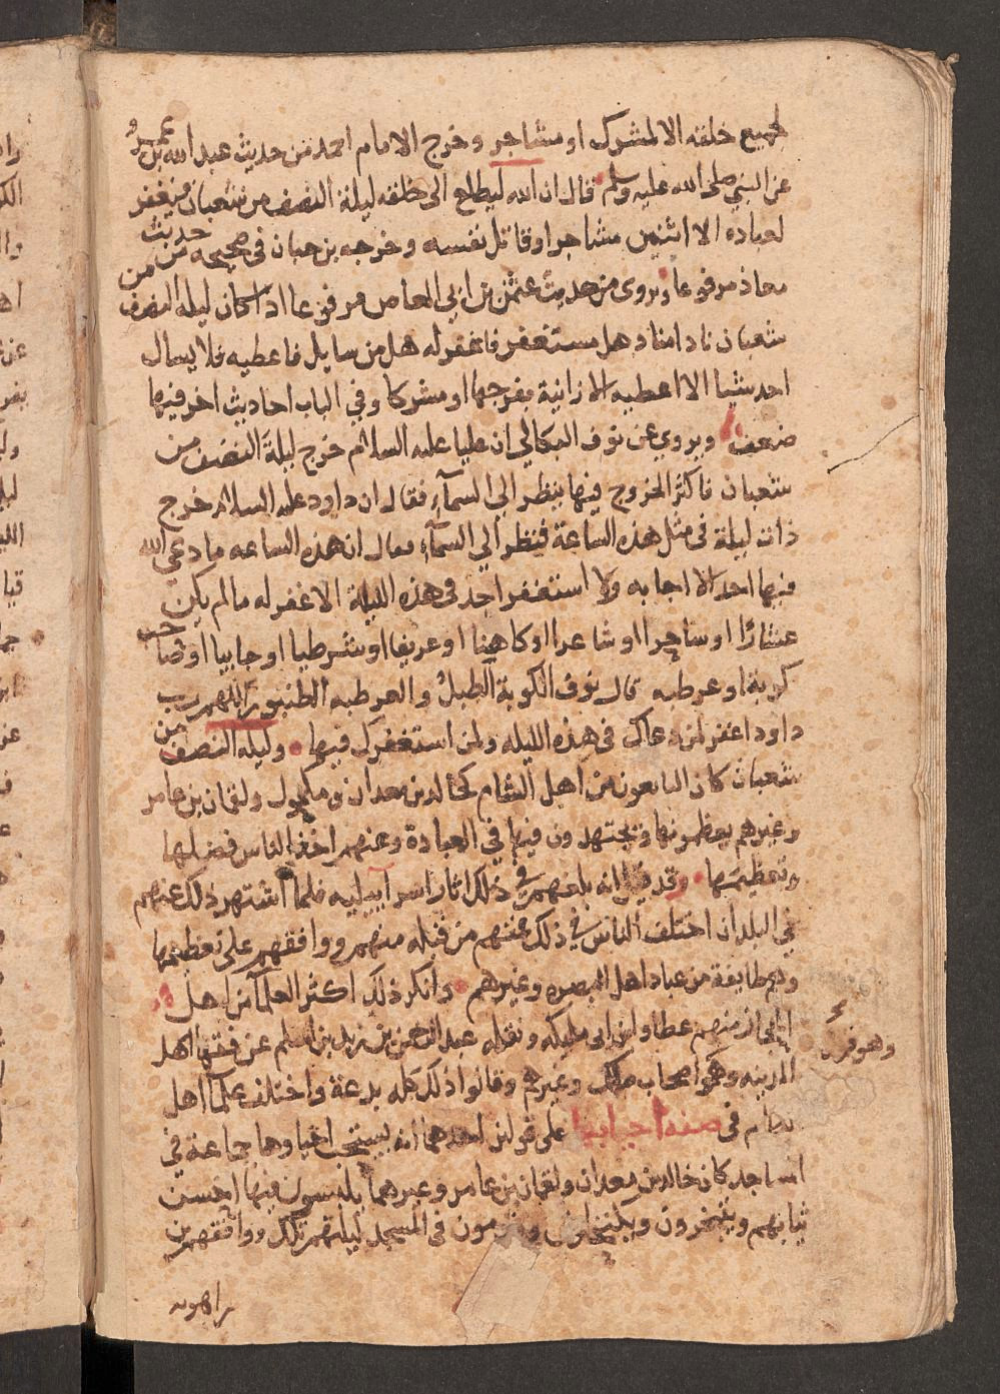 لجميع خلقه الا لمشرك او مشاجر وخرج الامام احمد من حديث عبد الله بن عمرو
عن النبي صلى الله عليه وسلم قال ان الله ليطلع الى خلقه ليلة النصف من شعبان فيغفر
لعباده الا اثنين مشاجر او قاتل نفسه وخرجه بن حبان في صحيحه من حديث
معاذ مرفوعا ويروى من حديث عثمن بن ابي العاص مرفوعا اذا كان ليله النصف من
شعبان نادا مناد هل مستغفر فاغفر له هل من سايل فاعطيه فلا يسال
احد شيا الا اعطيه الا زانية بفرجها او مشركا وفي الباب احاديث اخر فيها
ضعف ويروي عن نوف البكالي ان عليا عليه السلام خرج ليلة النصف من
شعبان فاكثر الخروج فيها ينظر الي السمآء فقال ان داود عليه السلام خرج
ذات ليلة في مثل هذه الساعة فنظر الي السمآء فقال ان هذه الساعه ما دعى الله
فيها احد الا اجابه ولا استغفر احد في هذه الليلة الا غفر له ما لم يكن
عشارا او ساحرا او شاعرا او كاهنا او عريفا او شرطيا او جابيا او صاحب
كوبة او عرطبه قال نوف الكوبة الطبل والعرطبه الطنبور اللهم رب
داود اغفر لمن دعاك في هذه الليله ولمن استغفرك فيها وليله النصف من
شعبان كان التابعون من اهل الشام كخالد بن معدان ومكحول ولقمان بن عامر
وغيرهم يعظمونها ويجتهدون فيها في العبادة وعنهم اخذ الناس فضلها
وتعظيمها وقد قيل انه بلغهم في ذلك اثار اسراييليه فلما اشتهر ذلك عنهم
في البلدان اختلف الناس في ذلك فمنهم من قبله منهم ووافقهم على تعظيمها
ومنهم طايفة من عباد اهل البصره وغيرهم وانكر ذلك اكثر العلمآ من اهل
الحجاز منهم عطا وابن ابي مليكه ونقله عبد الرحمن بن زيد بن اسلم عن فقها اهل
وهو قول
المدينه وهو اصحاب ملك وغيرهم وقالوا ذلك كله بدعة واختلف علمآ اهل
الشام في صفة احيايها على قولين احدهما انه يستحب احياوها جماعة في
المساجد كان خالد بن معدان ولقمان بن عامر وغيرهما يلبسون فيها احسن
ثيابهم ويتبخرون ويكتحلون ويقومون في المسجد ليلتهم تلك ووافقهم بن
راهويه